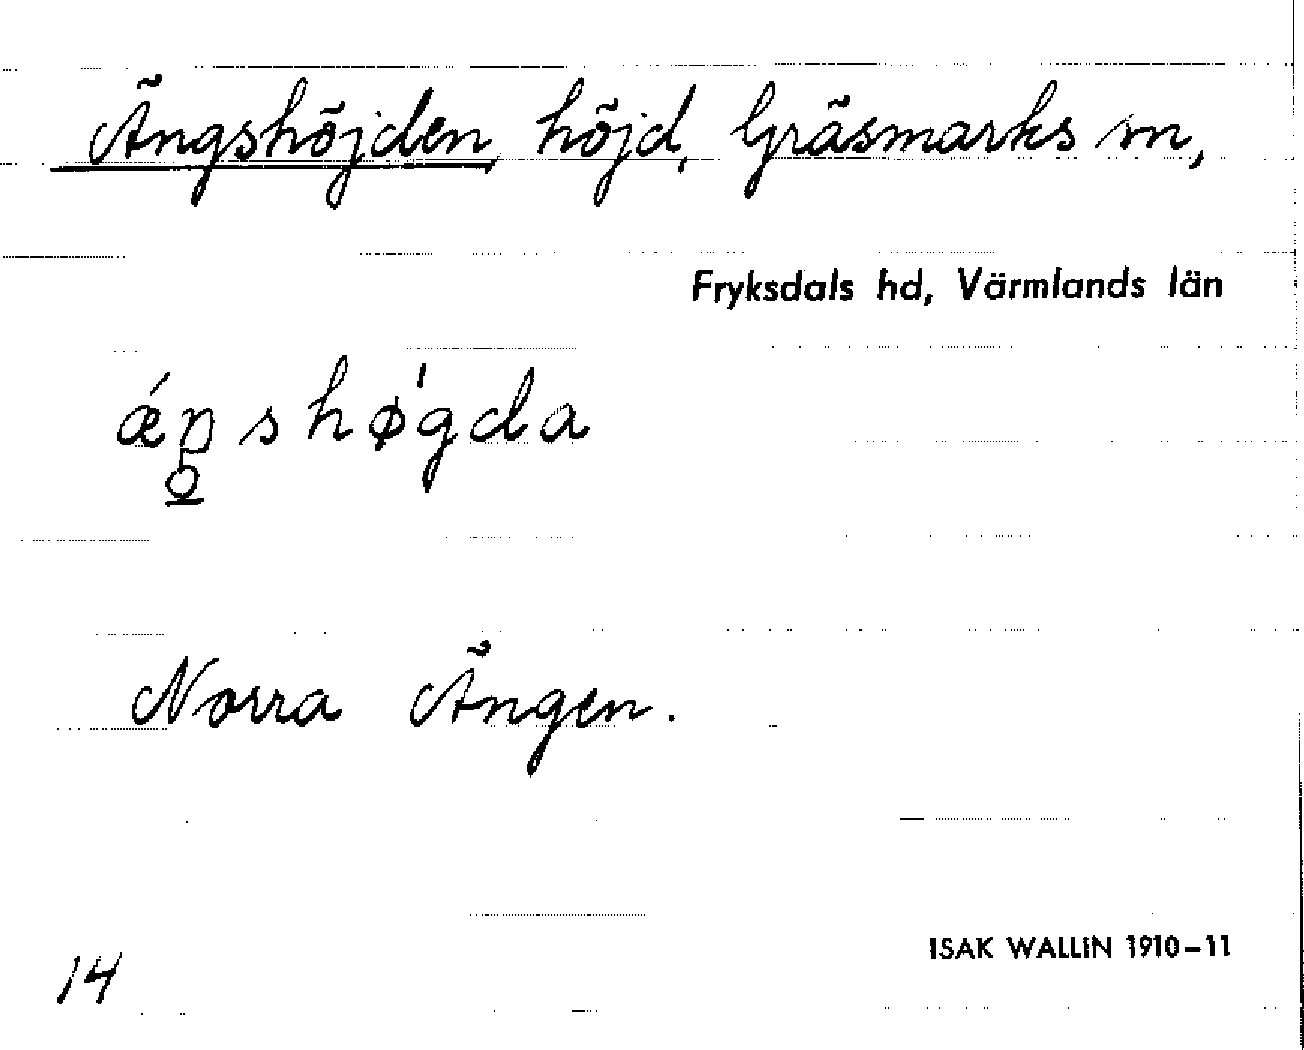 Ängshöjden, höjd, Gräsmarks sn,
Fryksdals hd, Värmlands län
ǽŋshø'gda
Norra Ängen.
ISAK WALLIN 1910–11
14